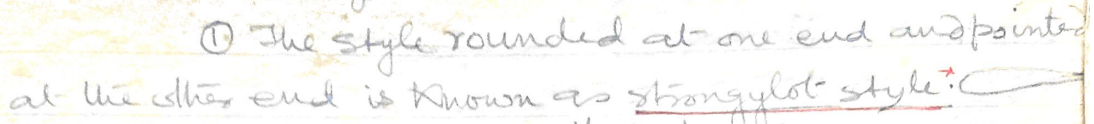 ① The style rounded at one end and pointed
at the other end is known as strongylot style: